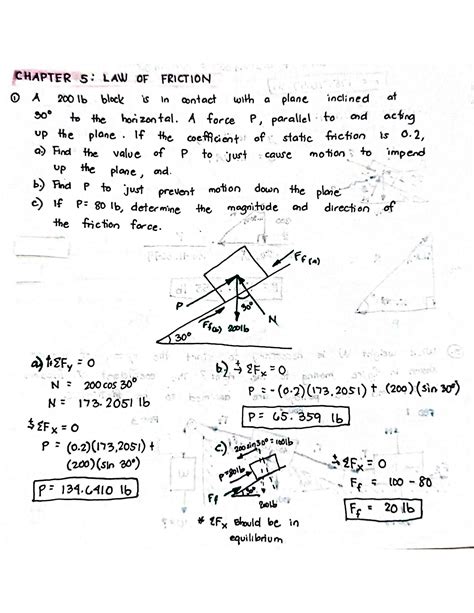 CHAPTER 5: LAW OF FRICTION
① A 200 lb block is in contact with a plane inclined at
30° to the horizontal. A force P, parallel to and acting
up the plane. If the coefficient of static friction is 0.2,
a) Find the value of P to just cause motion to impend
up the plane, and.
b) Find P to just prevent motion down the plane
c) If P= 80 lb, determine the magnitude and direction of
the friction force.
Ff(a)
P
30°
Ff(b)
200lb
N
30°
a) ΣFy = 0
N = 200 cos 30°
N = 173.2051 lb
ΣFx = 0
P = (0.2)(173.2051) +
(200)(sin 30°)
P = 134.6410 lb
b) ΣFx = 0
P = -(0.2)(173.2051) + (200)(sin 30°)
P = 65.359 lb
c)
200sin30° = 100lb
P=80lb
Ff
* ΣFx should be in
equilibrium
ΣFx = 0
Ff = 100 - 80
Ff = 20 lb